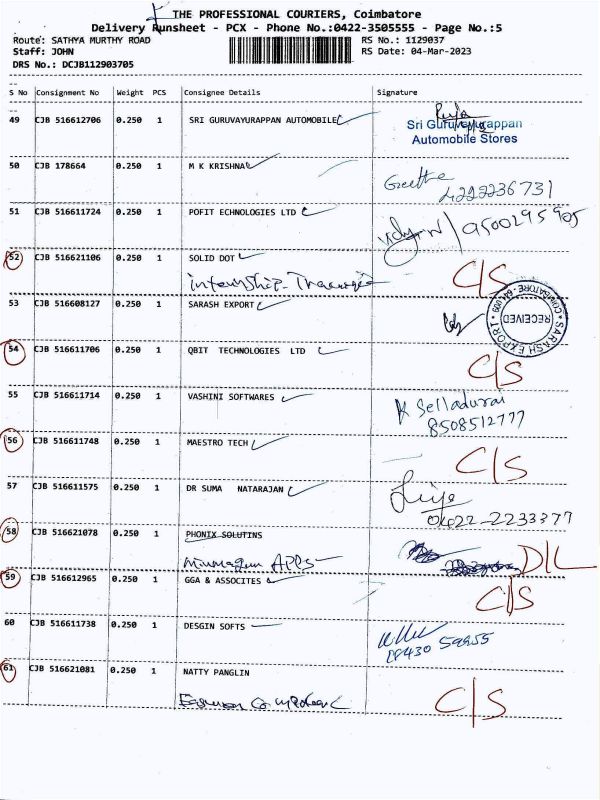 THE PROFESSIONAL COURIERS, Coimbatore
Delivery Runsheet - PCX - Phone No.:0422-3505555 - Page No.:5
Route: SATHYA MURTHY ROAD RS No.: 1129037
Staff: JOHN RS Date: 04-Mar-2023
DRS No.: DCJB112903705
S No Consignment No Weight PCS Consignee Details Signature
49 CJB 516612706 0.250 1 SRI GURUVAYURAPPAN AUTOMOBILE
Sri Guruvayurappan
Automobile Stores
50 CJB 178664 0.250 1 M K KRISHNA
Geetha
51 CJB 516611724 0.250 1 POFIT ECHNOLOGIES LTD
9500295905
52 CJB 516621106 0.250 1 SOLID DOT C/S
internship
53 CJB 516608127 0.250 1 SARASH EXPORT
SARASH EXPORT
RECEIVED
54 CJB 516611706 0.250 1 QBIT TECHNOLOGIES LTD C/S
55 CJB 516611714 0.250 1 VASHINI SOFTWARES
K Selladurai
8508512777
56 CJB 516611748 0.250 1 MAESTRO TECH C/S
57 CJB 516611575 0.250 1 DR SUMA NATARAJAN
0422-2233377
58 CJB 516621078 0.250 1 PHONIX SOLUTINS D/L
59 CJB 516612965 0.250 1 GGA & ASSOCITES C/S
60 CJB 516611738 0.250 1 DESGIN SOFTS
61 CJB 516621081 0.250 1 NATTY PANGLIN C/S